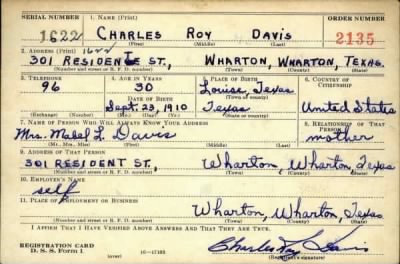 SERIAL NUMBER 1. NAME (Print) ORDER NUMBER
1622 CHARLES ROY DAVIS 2135
(First) (Middle) (Last)
2. ADDRESS (Print) 1622
301 RESIDENT ST., WHARTON, WHARTON, TEXAS.
(Number and street or R. F. D. number) (Town) (County) (State)
3. TELEPHONE 4. AGE IN YEARS 5. PLACE OF BIRTH 6. COUNTRY OF CITIZENSHIP
96 30 Louise, Texas
DATE OF BIRTH (Town or county)
Sept. 23, 1910 Texas United States
(Exchange) (Number) (Mo.) (Day) (Yr.) (State or country)
7. NAME OF PERSON WHO WILL ALWAYS KNOW YOUR ADDRESS 8. RELATIONSHIP OF THAT PERSON
Mrs. L. Davis mother
(Mr., Mrs., Miss) (First) (Middle) (Last)
9. ADDRESS OF THAT PERSON
301 RESIDENT ST., Wharton, Wharton, Texas
(Number and street or R. F. D. number) (Town) (County) (State)
10. EMPLOYER'S NAME
self
11. PLACE OF EMPLOYMENT OR BUSINESS
Wharton, Wharton, Texas
(Number and street or R. F. D. number) (Town) (County) (State)
I AFFIRM THAT I HAVE VERIFIED ABOVE ANSWERS AND THAT THEY ARE TRUE.
REGISTRATION CARD
D. S. S. Form 1 (over) 16—17105 Charles Roy Davis